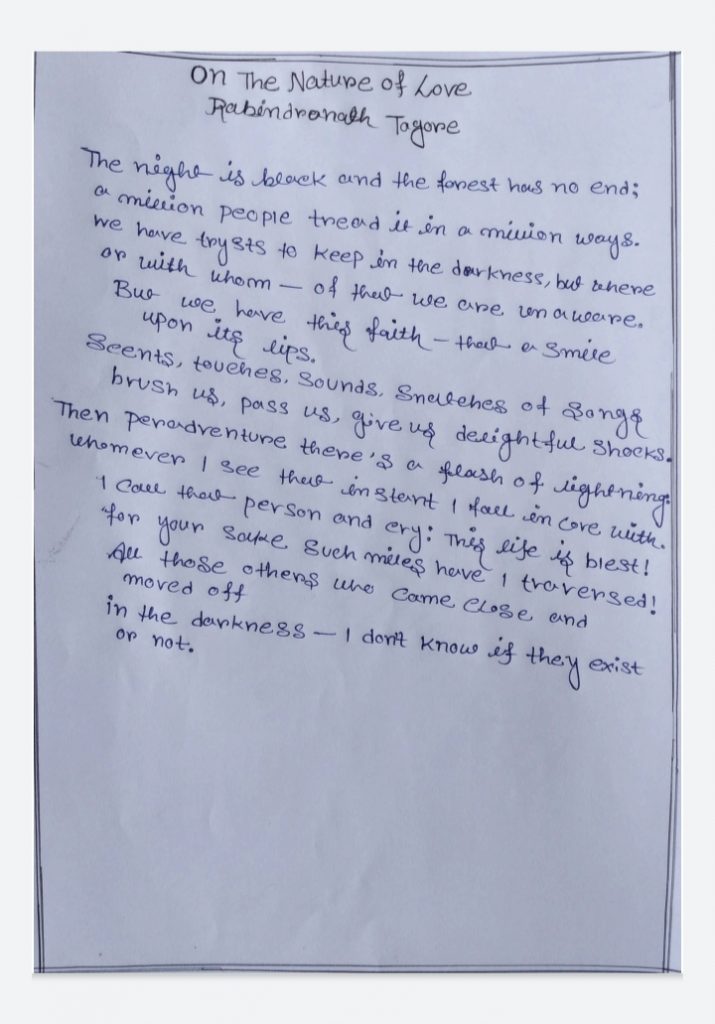 On The Nature of Love
Rabindranath Tagore
The night is black and the forest has no end;
a million people tread it in a million ways.
we have trysts to keep in the darkness, but where
or with whom — of that we are unaware.
But we have this faith — that a smile
upon its lips.
Scents, touches, Sounds, Snatches of Songs
brush us, pass us, give us delightful Shocks.
Then peradventure there's a flash of lightning.
whomever I see that instant I fall in love with.
I call that person and cry: This life is blest!
for your sake such miles have I traversed!
All those others who came close and
moved off
in the darkness — I don't know if they exist
or not.